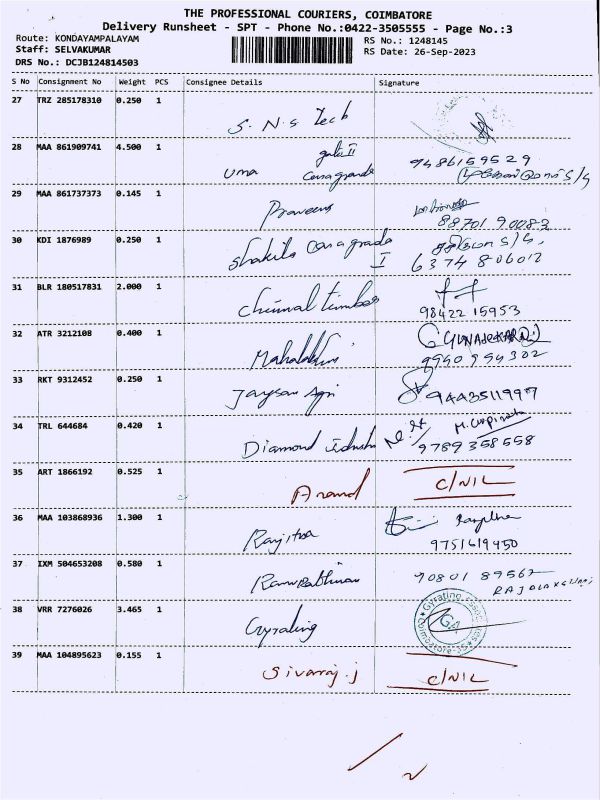 THE PROFESSIONAL COURIERS, COIMBATORE
Delivery Runsheet - SPT - Phone No.:0422-3505555 - Page No.:3
Route: KONDAYAMPALAYAM
RS No.: 1248145
Staff: SELVAKUMAR
RS Date: 26-Sep-2023
DRS No.: DCJB124814503
S No Consignment No Weight PCS Consignee Details Signature
27 TRZ 285178310 0.250 1
S.N.S Tech
28 MAA 861909741 4.500 1
9486159529
Uma Casagrande
29 MAA 861737373 0.145 1
Praveen
88701 90083
30 KDI 1876989 0.250 1
Shakila Casagrada
I
63748 06012
31 BLR 180517831 2.000 1
Chinnal timber
98422 15953
32 ATR 3212108 0.400 1
GUNASEKARAN
Mahalakshmi
9990 994302
33 RKT 9312452 0.250 1
Jayson Agri
9443511997
34 TRL 644684 0.420 1
Diamond
9789358558
35 ART 1866192 0.525 1
Anand
C/NIL
36 MAA 103868936 1.300 1
Ranjitha
9751619450
37 IXM 504653208 0.580 1
90801 89562
38 VRR 7276026 3.465 1
Gyrating
39 MAA 104895623 0.155 1
Sivaraj.j
C/NIL